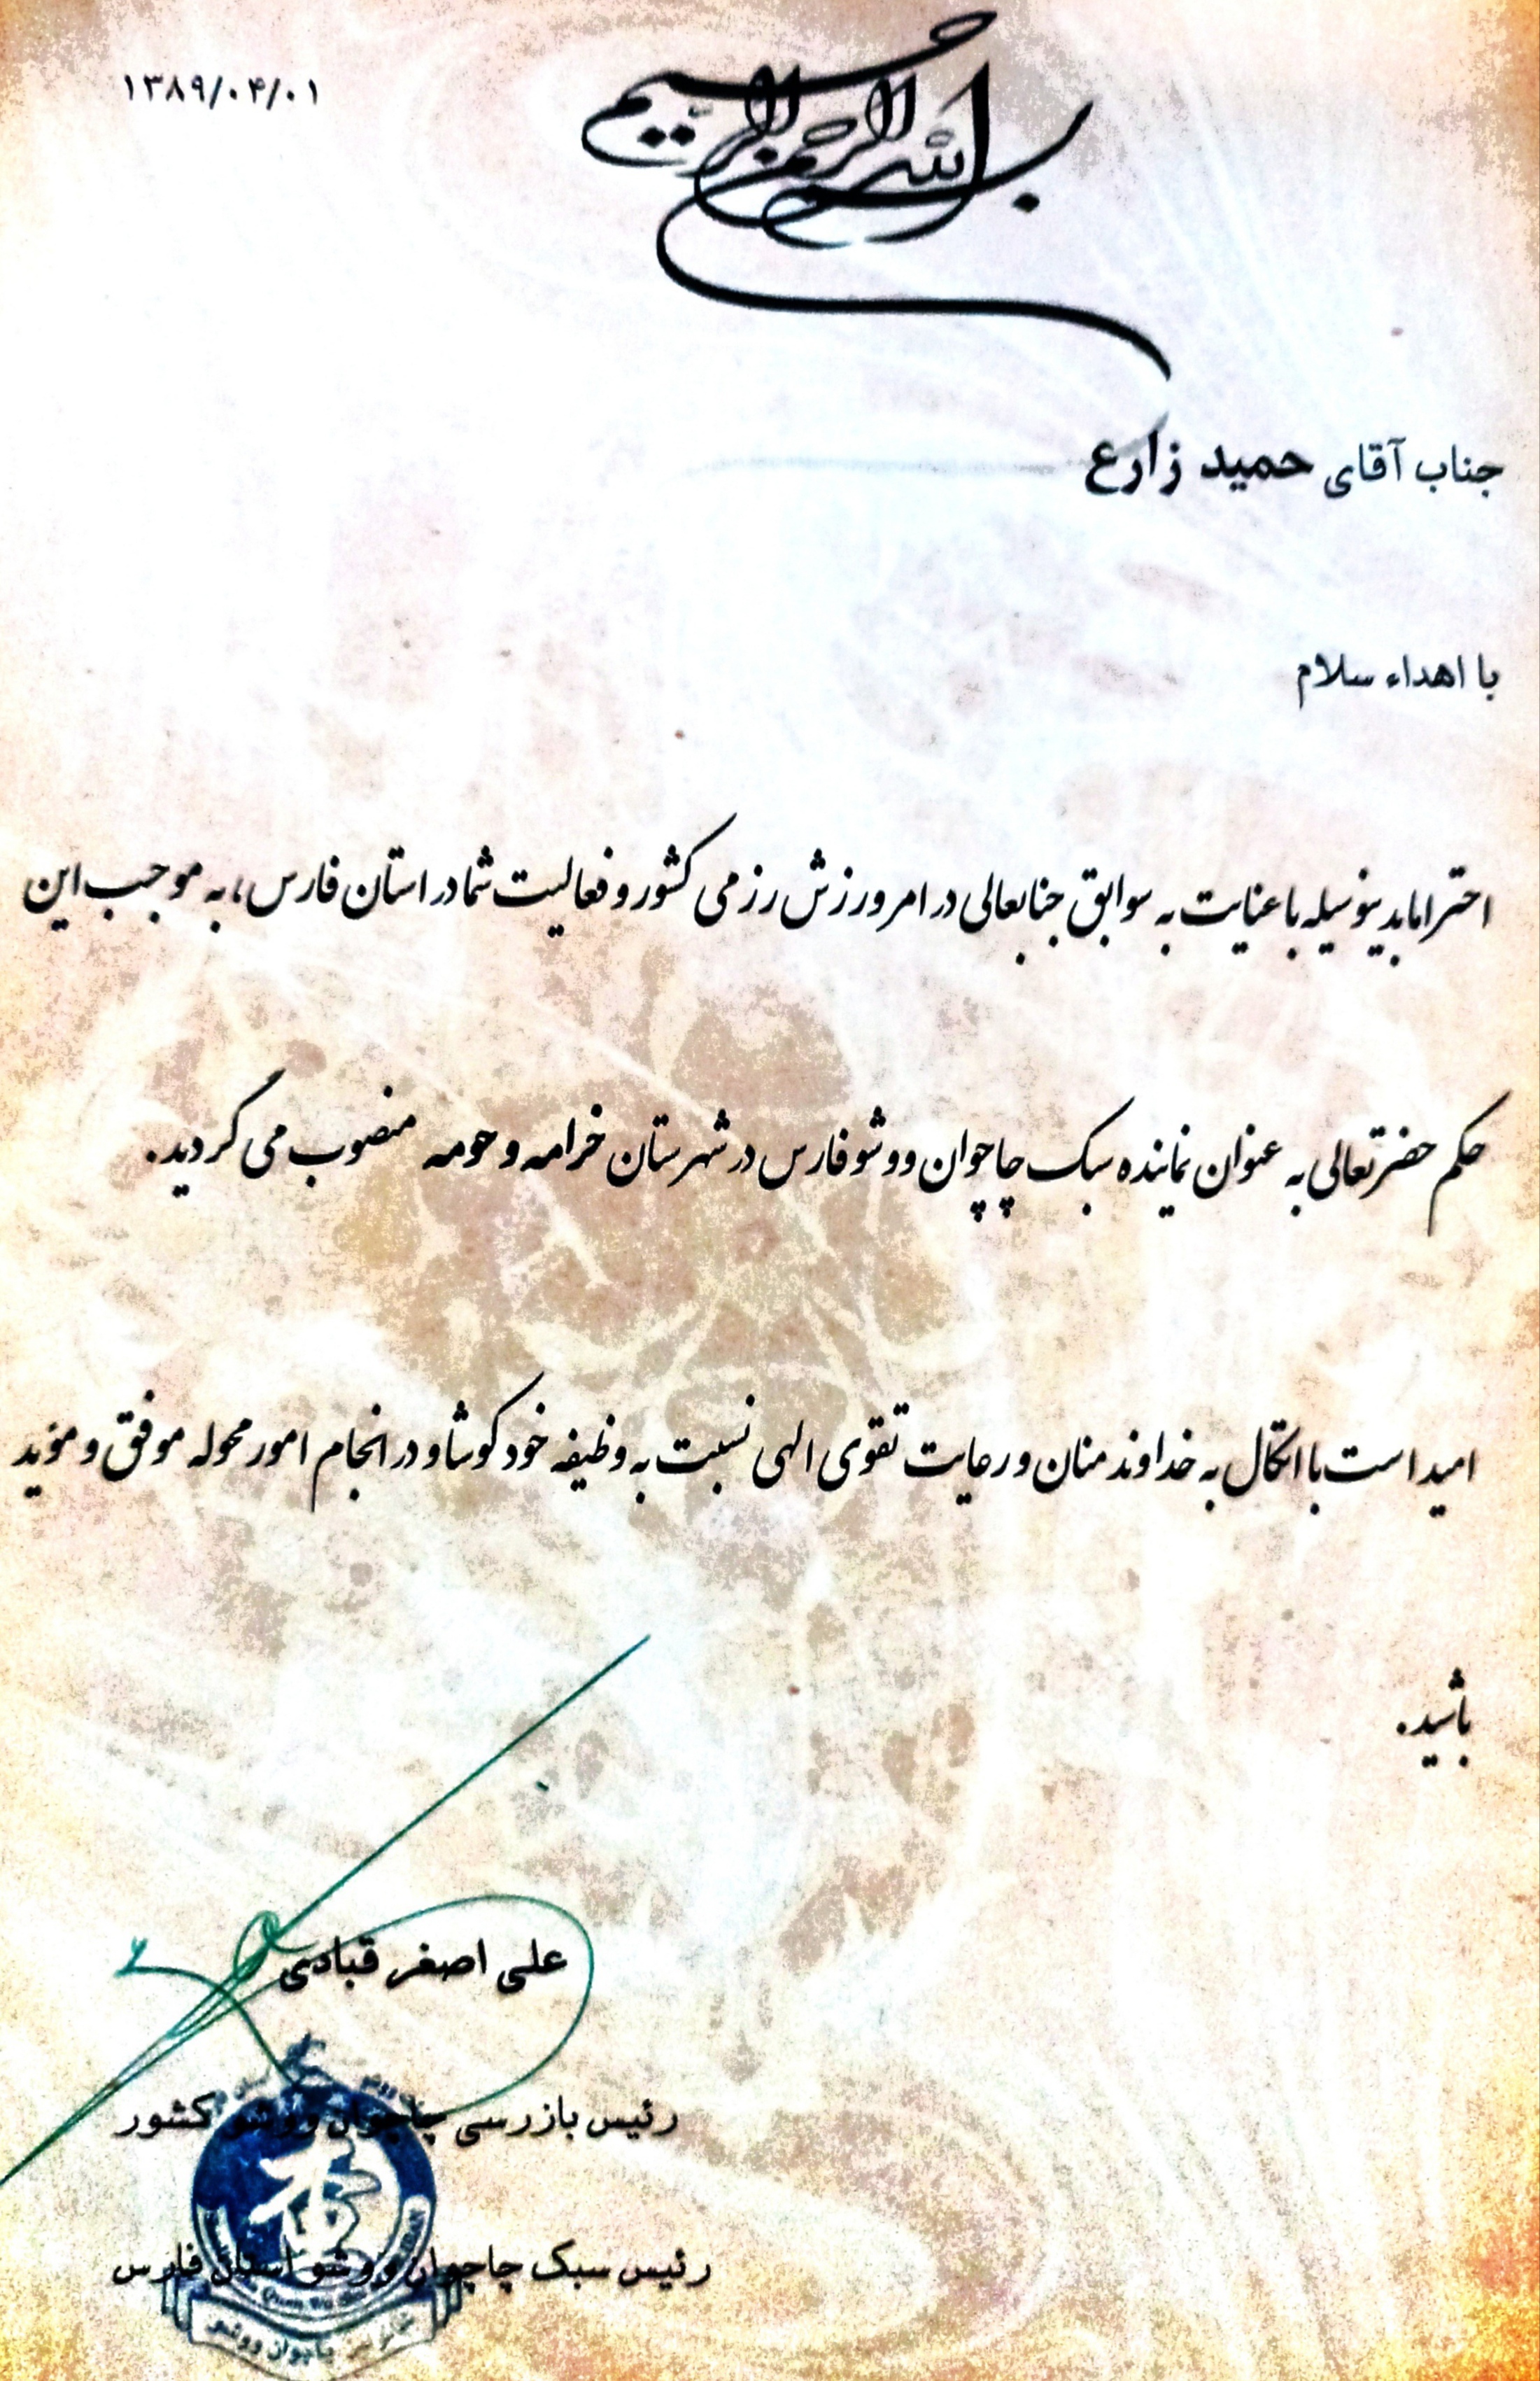 ۱۳۸۹/۰۴/۰۱
بسم الله الرحمن الرحیم
جناب آقای حمید زارع
با اهداء سلام
احتراما بدینوسیله با عنایت به سوابق جنابعالی در امر ورزش رزمی کشور و فعالیت شما در استان فارس، به موجب این
حکم حضرتعالی به عنوان نماینده سبک چاچوان ووشو فارس در شهرستان خرامه و حومه منصوب می گردید.
امید است با اتکال به خداوند منان و رعایت تقوی الهی نسبت به وظیفه خود کوشا و در انجام امور محوله موفق و مؤید
باشید.
علی اصغر قبادی
رئیس بازرسی چاچوان ووشو کشور
رئیس سبک چاچوان ووشو استان فارس
چاچوان ووشو